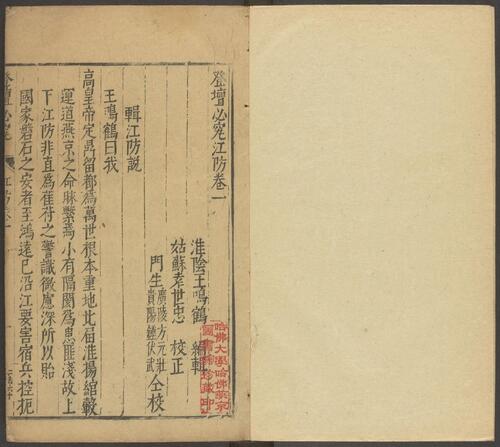 登壇必究江防卷一
淮陰王鳴鶴 編輯
姑蘇袁世忠 校正
門生廣陵方元壯
貴陽鍾伏武仝校
輯江防說
王鳴鶴曰我
高皇帝定鼎留都為萬世根本重地比屆淮揚綰轂
運道燕京之命脉繫焉小有隔閡為患匪淺故上
下江防非直為萑苻之警識微慮深所以貽
國家磐石之安者至鴻遠已沿江要害宿兵控扼
登壇必究 江防卷一
哈佛大學哈佛燕京
圖書館珍藏印